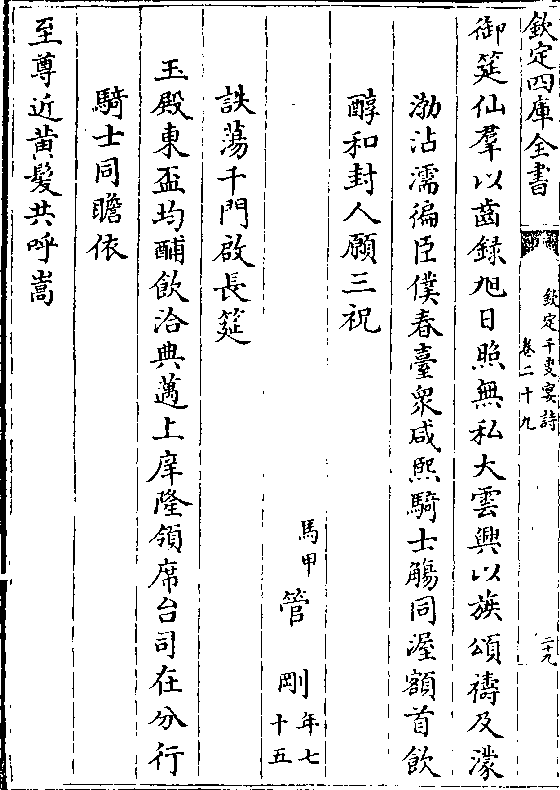 欽定四庫全書
欽定千叟宴詩
卷二十九
二十九
御筵仙羣以齒録旭日照無私大雲興以族頌禱及濛
渤沾濡徧臣僕春臺衆咸熙騎士觴同渥額首飲
醇和封人願三祝
馬甲管剛年七十五
詄蕩千門啟長筵
玉殿東盃均酺飲洽典邁上庠隆領席台司在分行
騎士同瞻依
至尊近黃髮共呼嵩